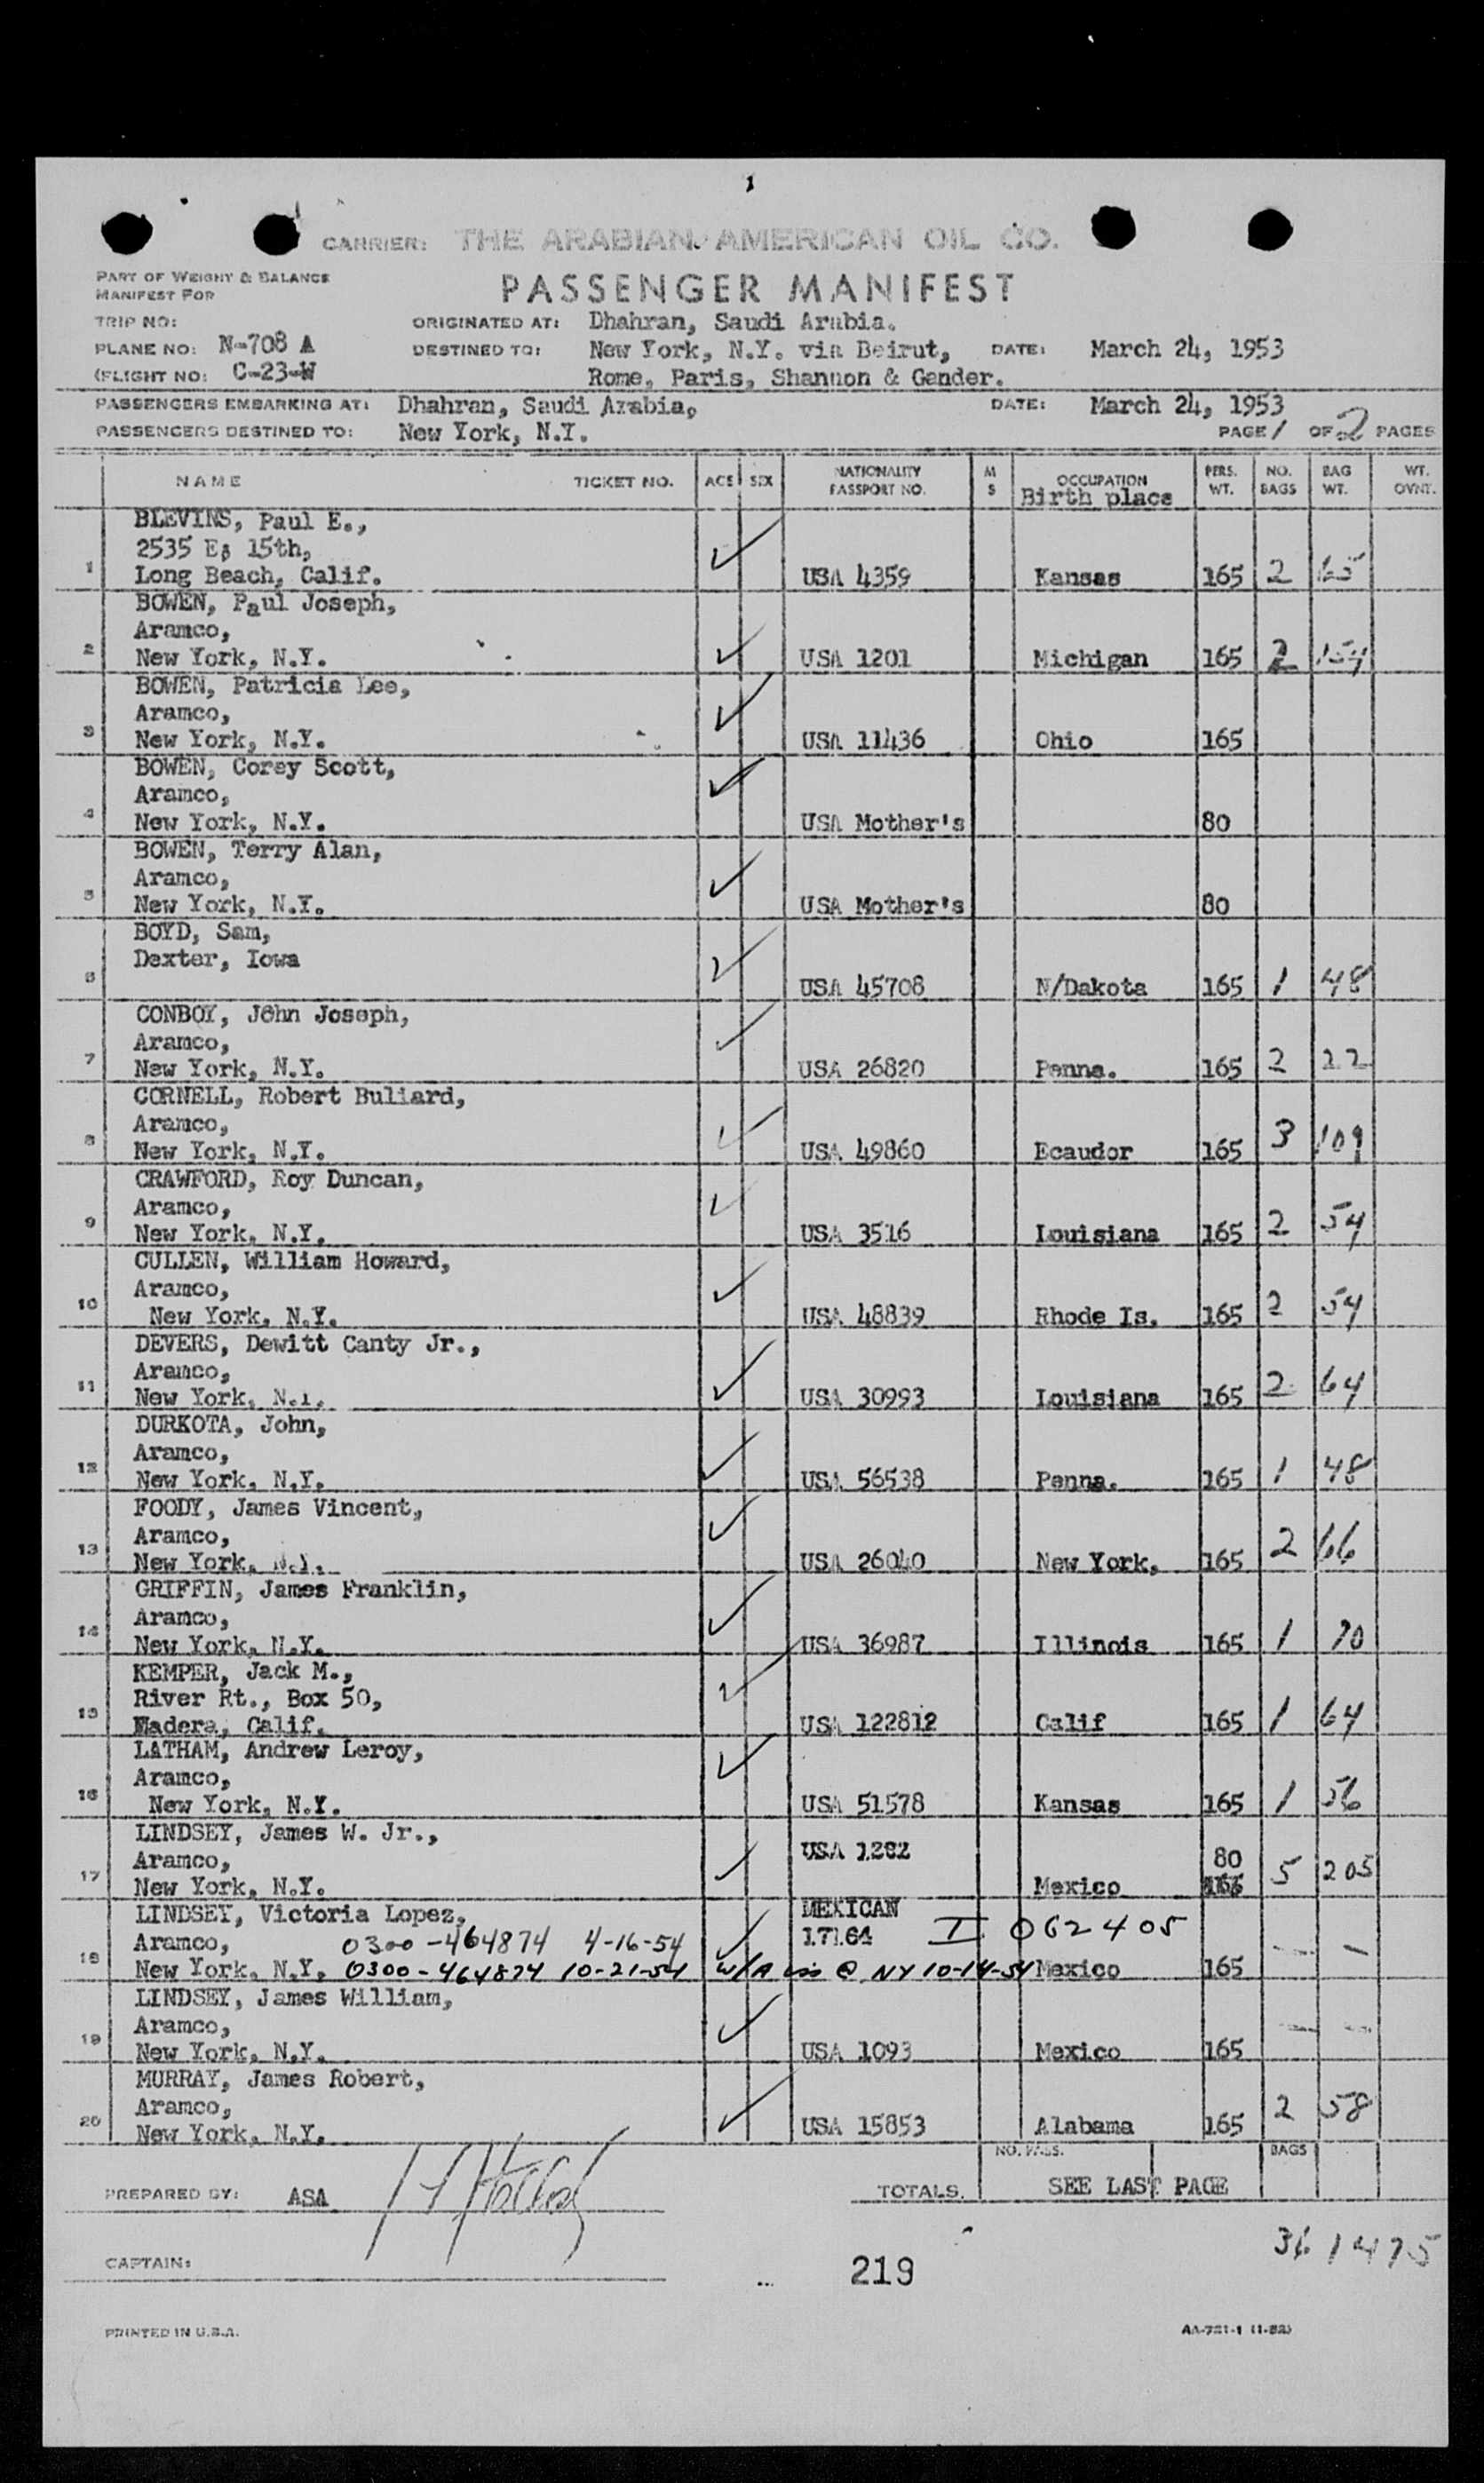 1
CARRIER: THE ARABIAN AMERICAN OIL CO.
PART OF WEIGHT & BALANCE
MANIFEST FOR
PASSENGER MANIFEST
TRIP NO:
ORIGINATED AT: Dhahran, Saudi Arabia.
PLANE NO: N-708 A
DESTINED TO: New York, N.Y. via Beirut, DATE: March 24, 1953
(FLIGHT NO: C-23-W
Rome, Paris, Shannon & Gander.
PASSENGERS EMBARKING AT: Dhahran, Saudi Arabia, DATE: March 24, 1953
PASSENGERS DESTINED TO: New York, N.Y. PAGE 1 OF 2 PAGES
NAME TICKET NO. AGE SEX NATIONALITY PASSPORT NO. M S OCCUPATION Birth place PERS. WT. NO. BAGS BAG WT. WT. OVNT.
BLEVINS, Paul E.,
2535 E; 15th,
1 Long Beach, Calif. USA 4359 Kansas 165 2 65
BOWEN, Paul Joseph,
Aramco,
2 New York, N.Y. USA 1201 Michigan 165 2 154
BOWEN, Patricia Lee,
Aramco,
3 New York, N.Y. USA 11436 Ohio 165
BOWEN, Corey Scott,
Aramco,
4 New York, N.Y. USA Mother's 80
BOWEN, Terry Alan,
Aramco,
5 New York, N.Y. USA Mother's 80
BOYD, Sam,
Dexter, Iowa
6 USA 45708 N/Dakota 165 1 48
CONBOY, John Joseph,
Aramco,
7 New York, N.Y. USA 26820 Penna. 165 2 22
CORNELL, Robert Bullard,
Aramco,
8 New York, N.Y. USA 49860 Ecaudor 165 3 109
CRAWFORD, Roy Duncan,
Aramco,
9 New York, N.Y. USA 3516 Louisiana 165 2 54
CULLEN, William Howard,
Aramco,
10 New York, N.Y. USA 48839 Rhode Is. 165 2 54
DEVERS, Dewitt Canty Jr.,
Aramco,
11 New York, N.Y. USA 30993 Louisiana 165 2 64
DURKOTA, John,
Aramco,
12 New York, N.Y. USA 56538 Penna. 165 1 48
FOODY, James Vincent,
Aramco,
13 New York, N.Y. USA 26040 New York, 165 2 66
GRIFFIN, James Franklin,
Aramco,
14 New York, N.Y. USA 36987 Illinois 165 1 70
KEMPER, Jack M.,
River Rt., Box 50,
15 Madera, Calif. USA 122812 Calif 165 1 64
LATHAM, Andrew Leroy,
Aramco,
16 New York, N.Y. USA 51578 Kansas 165 1 56
LINDSEY, James W. Jr.,
Aramco, USA 1282 80
17 New York, N.Y. Mexico 5 205
LINDSEY, Victoria Lopez, MEXICAN
Aramco, 0300-464874 4-16-54 17164 I 062405
18 New York, N.Y. 0300-464874 10-21-54 W/A @ NY 10-14-54 Mexico 165 - -
LINDSEY, James William,
Aramco,
19 New York, N.Y. USA 1093 Mexico 165 - -
MURRAY, James Robert,
Aramco,
20 New York, N.Y. USA 15853 Alabama 165 2 58
NO. PASS. BAGS
PREPARED BY: ASA TOTALS. SEE LAST PAGE
36 1475
CAPTAIN:
219
PRINTED IN U.S.A. AA-721-1 (1-52)